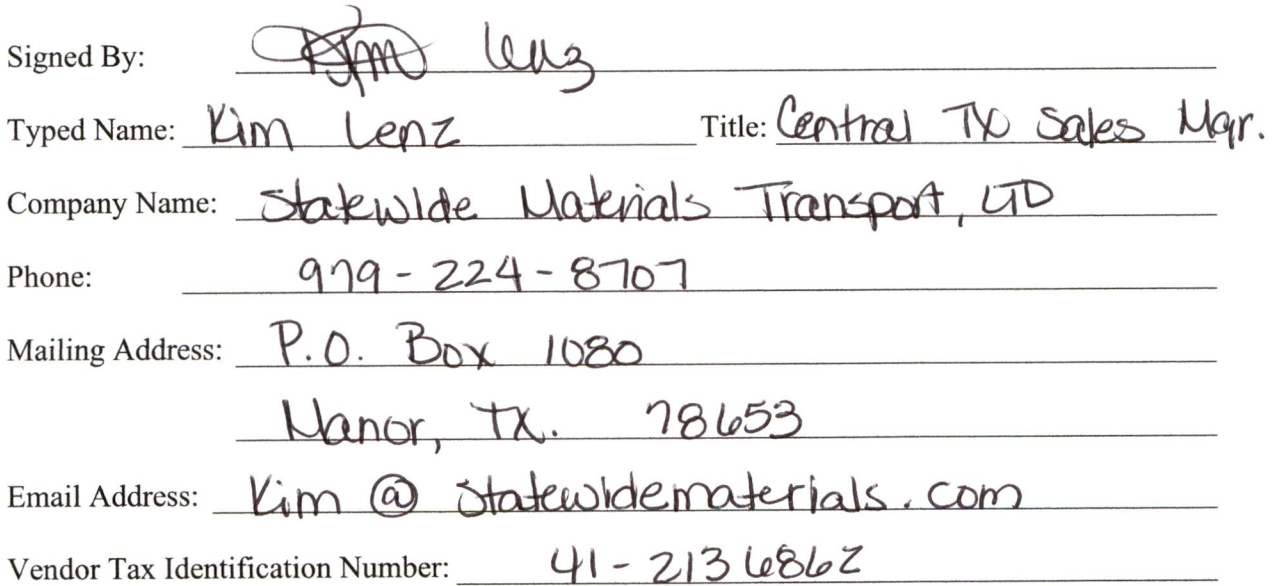 Signed By: Kim Lenz
Typed Name: Kim Lenz Title: Central TX Sales Mgr.
Company Name: Statewide Materials Transport, LTD
Phone: 979-224-8707
Mailing Address: P.O. Box 1080
Manor, TX. 78653
Email Address: Kim @ statewidematerials.com
Vendor Tax Identification Number: 41-2136862